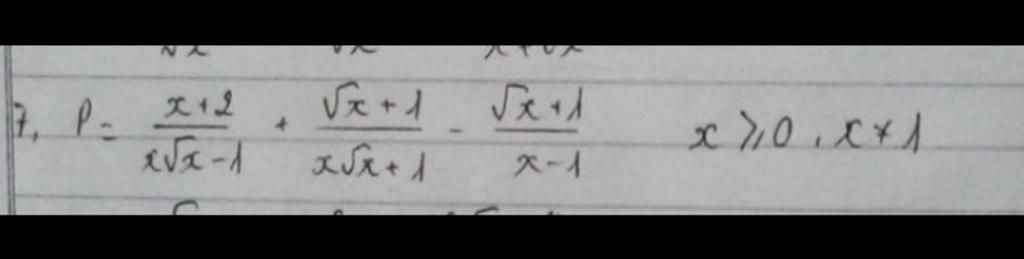 7, P = \frac{x+2}{x\sqrt{x}-1} + \frac{\sqrt{x}+1}{x\sqrt{x}+1} - \frac{\sqrt{x}+1}{x-1} x ⩾ 0 , x ≠ 1